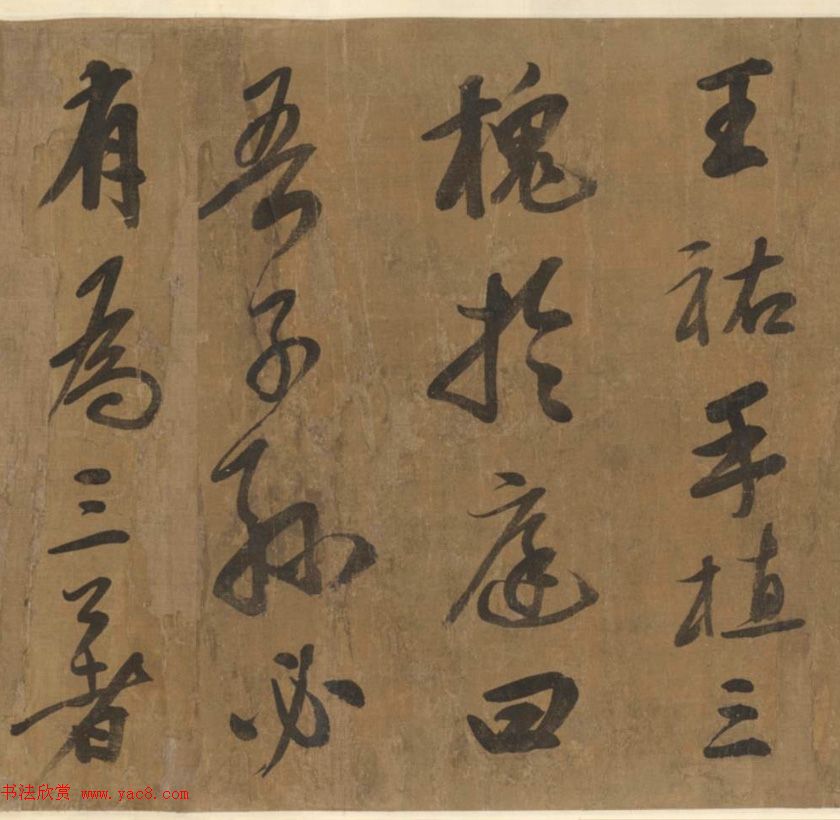 王祐手植三
槐於庭曰
吾子孫必
有為三公者
书法欣赏 www.yac8.com